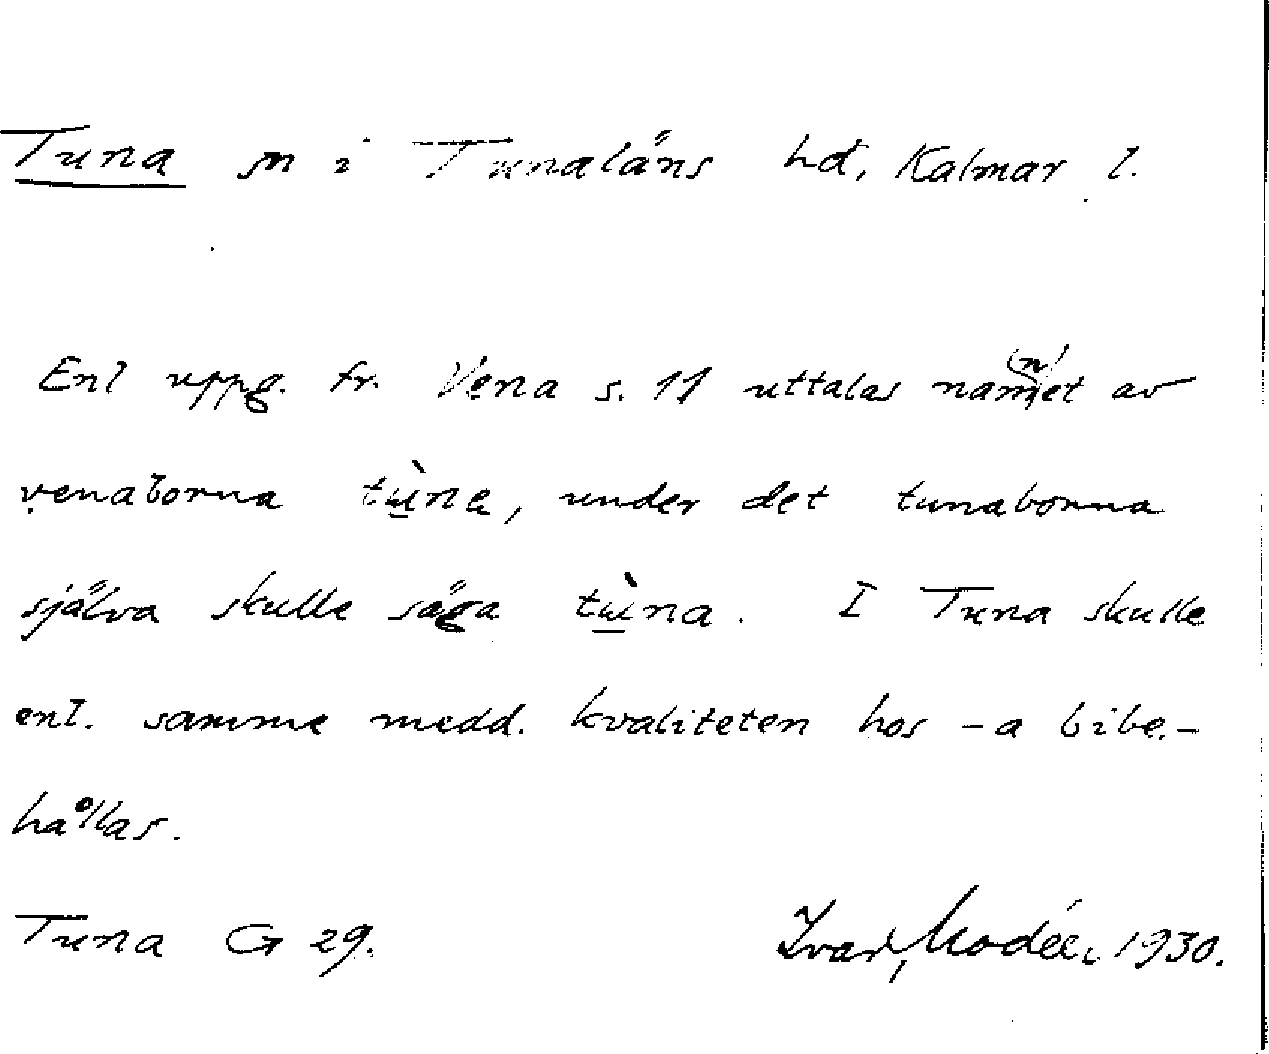 Tuna sn i Tunaläns hd, Kalmar l.
Enl uppg. fr. Vena s. 11 uttalas nam(n)et av
venaborna tù̲na, under det tunaborna
själva skulle säga tù̲na. I Tuna skulle
enl. samme medd. kvaliteten hos -a bibe-
hållas.
Tuna G 29. Ivar Modéer 1930.